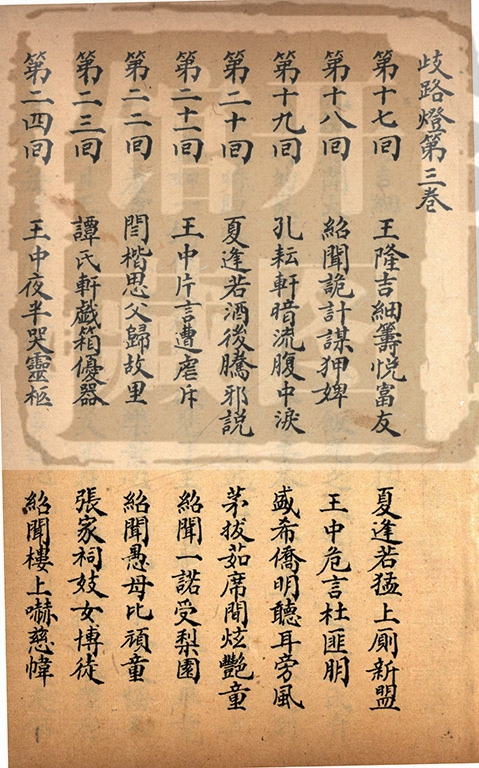 歧路燈第三卷
第十七回 王隆吉細籌悅富友 夏逢若猛上廁新盟
第十八回 紹聞詭計謀狎婢 王中危言杜匪朋
第十九回 孔耘軒暗流腹中淚 盛希僑明聽耳旁風
第二十回 夏逢若酒後騰邪説 茅拔茹席間炫艷童
第二十一回 王中片言遭虐斥 紹聞一諾受梨園
第二二回 閆楷思父歸故里 紹聞愚母比頑童
第二三回 譚氏軒戲箱優器 張家祠妓女博徒
第二四回 王中夜半哭靈柩 紹聞樓上嚇慈幃